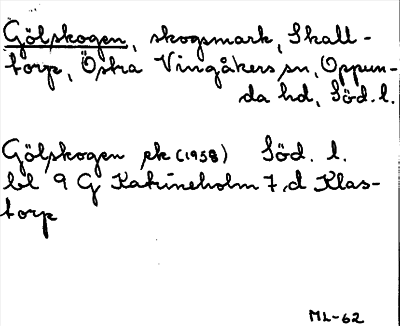 Gölskogen, skogsmark, Skall-
torp, Östra Vingåkers sn, Oppun-
da hd, Söd. l.
Gölskogen ek (1958) Söd. l.
bl 9 G Katrineholm 7 d Klas-
torp
ML-62